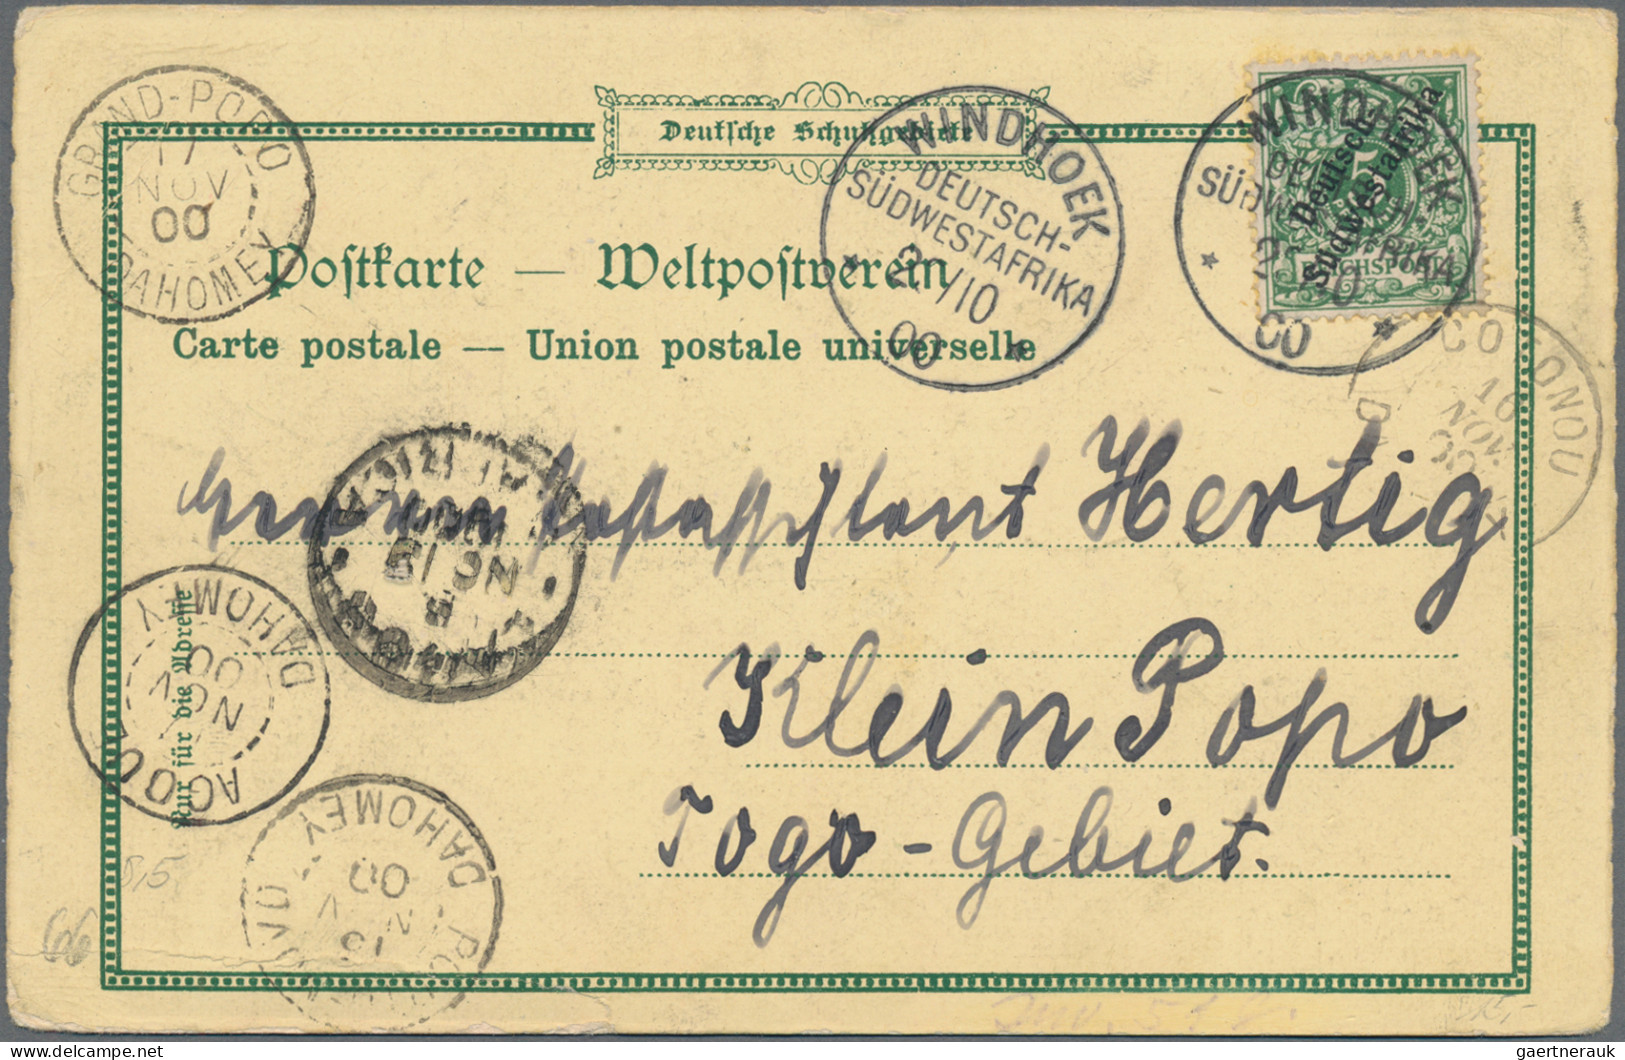 Deutsche Schutzgebiete
Postkarte — Weltpostverein
Carte postale — Union postale universelle
GRAND-POPO
17
NOV
00
DAHOMEY
WINDHOEK
DEUTSCH-
SÜDWESTAFRIKA
/10
00
WINDHOEK
SÜDWESTAFRIKA
00
5
Deutsch-
Südwestafrika
REICHSPOST
COTONOU
16
NOV
Herrn Postassistent Hertig
Klein Popo
Togo-Gebiet.
Nur für die Adresse
DAHOMEY
00
NOV
AGOUÉ
DAHOMEY
00
NO 13
8,5
66
gaertnerauk